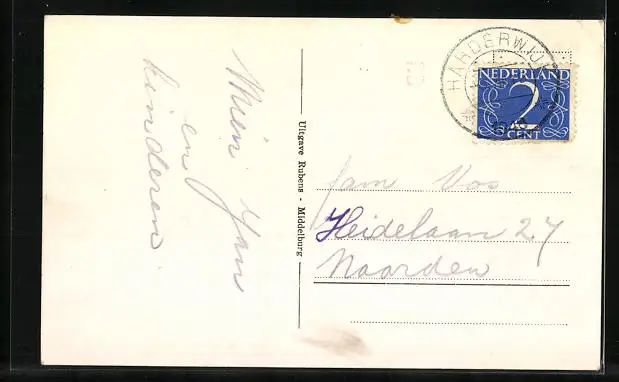 Mien Jan
en
kinderen
Uitgave Rubens - Middelburg
HARDERWIJK
NEDERLAND
2
CENT
fam Vos
Heidelaan 27
Naarden